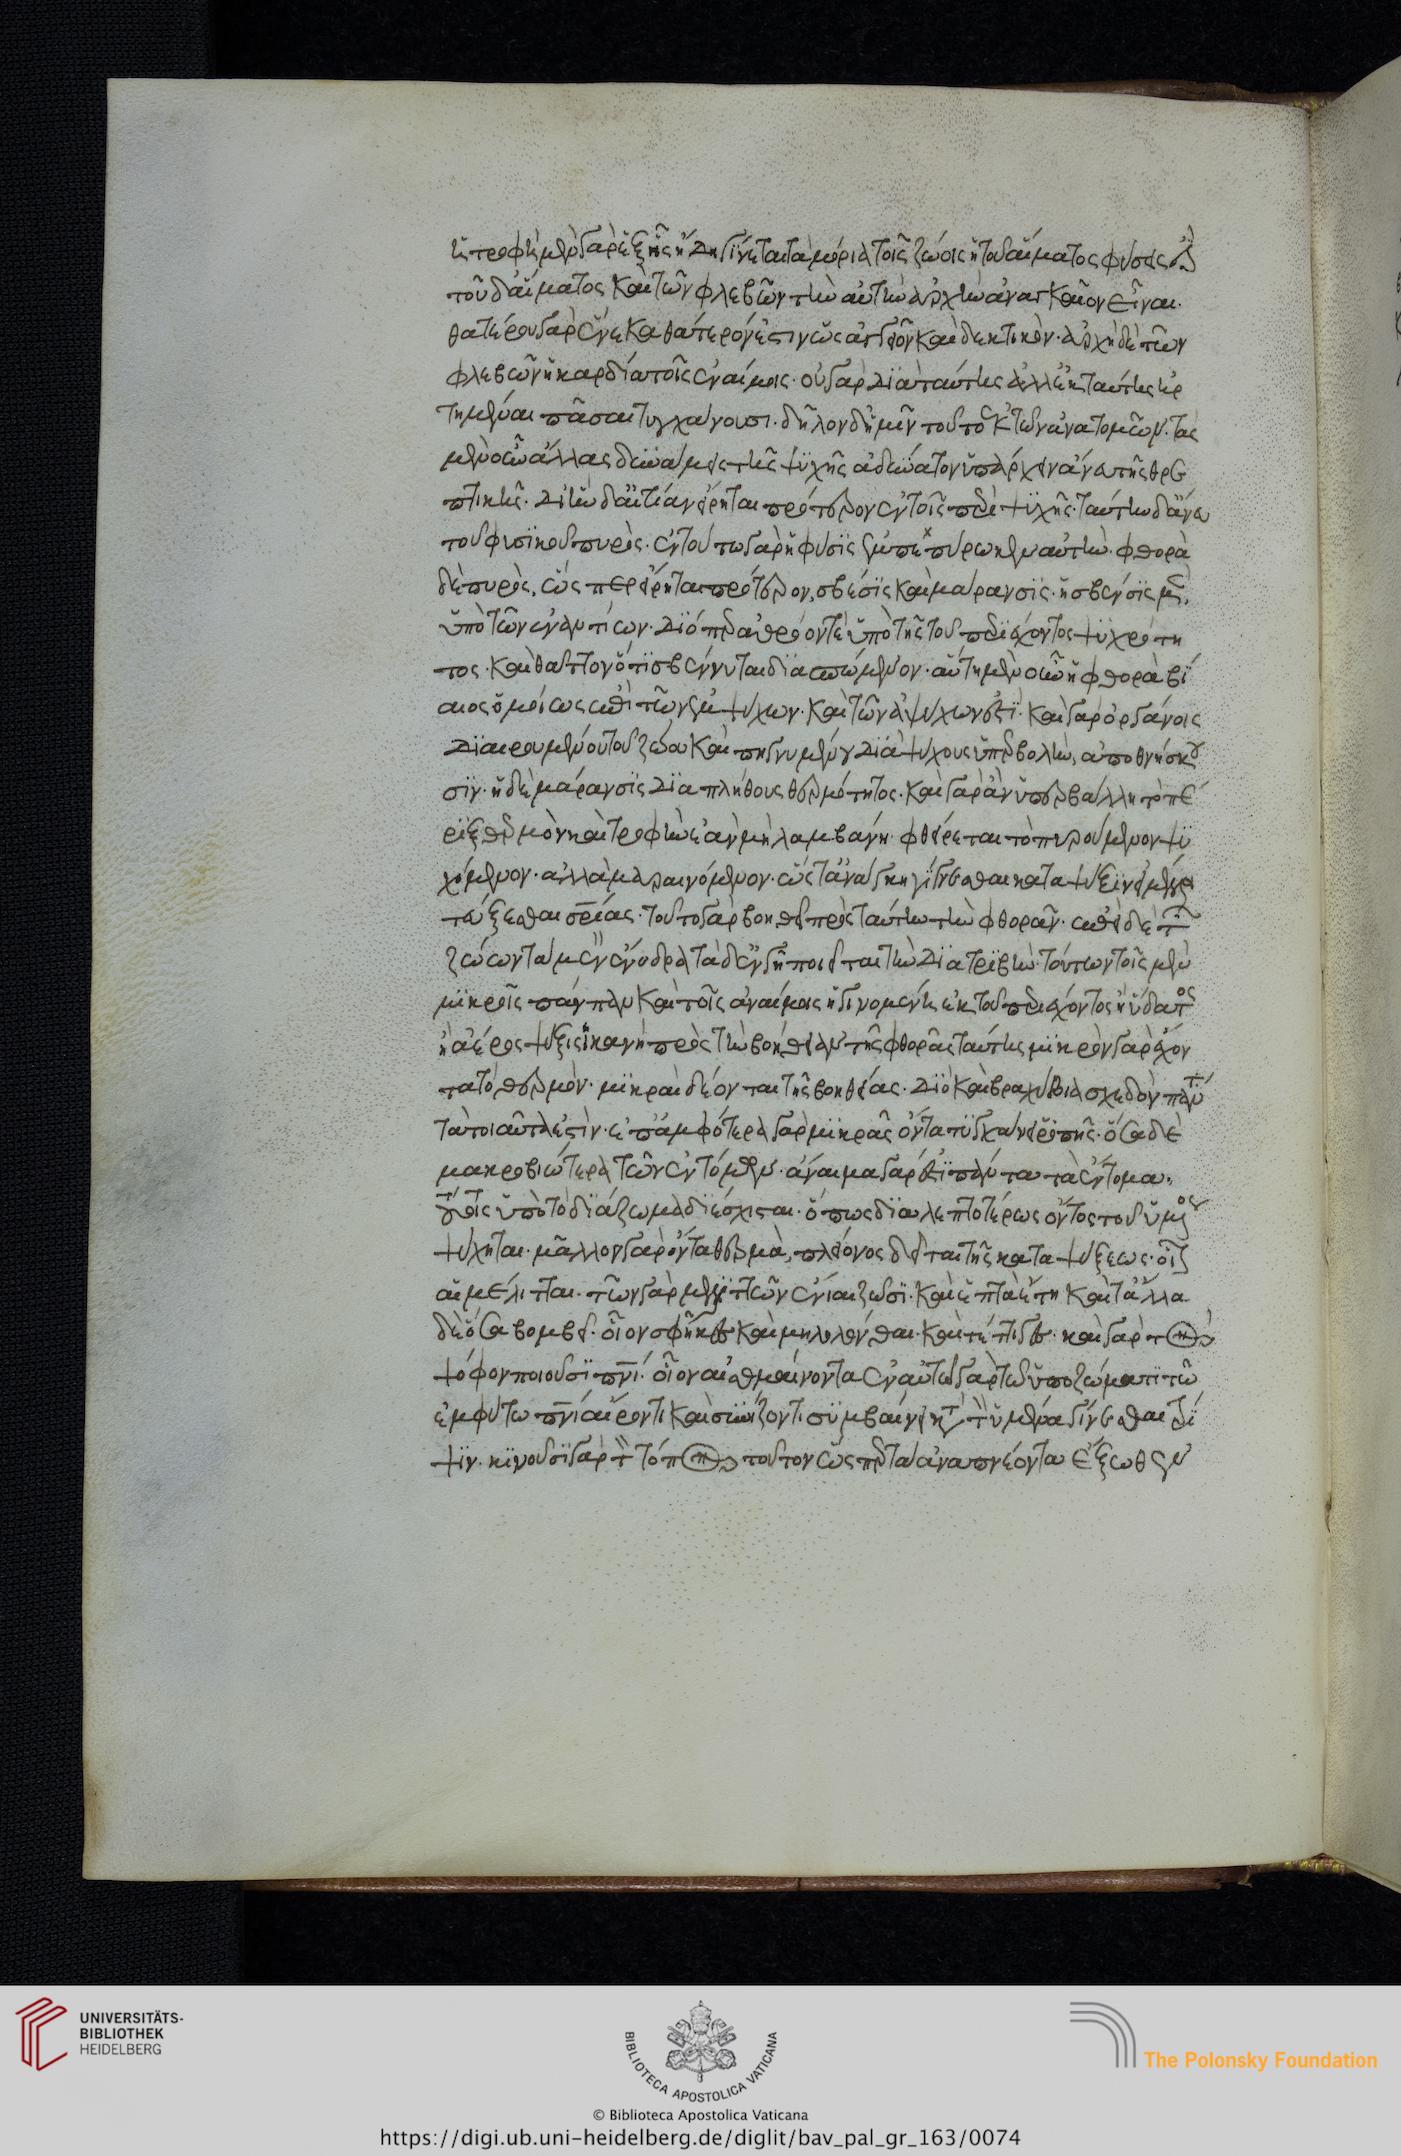 ἡ τροφὴ μὲν γὰρ ἐξ ἧς ἤδη γίνεται τὰ μόρια τοῖς ζώοις ἡ τοῦ αἵματος φύσις ἐστί
τοῦ δ' αἵματος καὶ τῶν φλεβῶν τὴν αὐτὴν ἀρχὴν ἀναγκαῖον εἶναι.
θατέρου γὰρ ἕνεκα θάτερόν ἐστιν ὡς ἀγγεῖον καὶ δεκτικόν. ἀρχὴ δὲ τῶν
φλεβῶν ἡ καρδία τοῖς ἐναίμοις. οὐ γὰρ διὰ ταύτης ἀλλ' ἐκ ταύτης ἠρ
τημέναι πᾶσαι τυγχάνουσι. δῆλον δ' ἡμῖν τοῦτο ἐκ τῶν ἀνατομῶν. τὰς
μὲν οὖν ἄλλας δυνάμεις τῆς ψυχῆς ἀδύνατον ὑπάρχειν ἄνευ τῆς θρε
πτικῆς. δι' ἣν δ' αἰτίαν εἴρηται πρότερον ἐν τοῖς περὶ ψυχῆς. ταύτην δ' ἄνευ
τοῦ φυσικοῦ πυρὸς. ἐν τούτω γὰρ ἡ φύσις ἐμπεπύρωκεν αὐτὴν. φθορὰ
δὲ πυρὸς, ὥσπερ εἴρηται πρότερον, σβέσις καὶ μάρανσις. ἡ σβέσις μὲν
ὑπὸ τῶν ἐναντίων. διόπερ ἀθρόον τε ὑπὸ τῆς τοῦ περιέχοντος ψυχρότη
τος. καὶ θᾶττον ὅτι σβέννυται διασπώμενον. αὕτη μὲν οὖν ἡ φθορὰ βί
αιος ὁμοίως ἐπὶ τῶν ἐμψύχων. καὶ τῶν ἀψύχων ἐστί. καὶ γὰρ ὀργάνοις
διαιρουμένου τοῦ ζώου καὶ πηγνυμένου διὰ ψύχους ὑπερβολὴν, ἀποθνήσκου
σιν. ἡ δὲ μάρανσις διὰ πλήθους θερμότητος. καὶ γὰρ ἂν ὑπερβάλλη τὸ πέ
ριξ θερμὸν καὶ τροφὴν ἐὰν μὴ λαμβάνη. φθείρεται τὸ πυρούμενον οὐ ψυ
χόμενον. ἀλλὰ μαραινόμενον. ὥστ' ἀνάγκη γίγνεσθαι κατάψυξιν εἰ μέλλει
τεύξεσθαι σωτηρίας. τοῦτο γὰρ βοηθεῖ πρὸς ταύτην τὴν φθοράν. ἐπεὶ δὲ τῶν
ζώων τὰ μέν ἐστιν ἔνυδρα τὰ δ' ἐν γῆ ποιεῖται τὴν διατριβὴν. τούτων τοῖς μὲν
μικροῖς πάμπαν καὶ τοῖς ἀναίμοις ἡ γινομένη ἐκ τοῦ περιέχοντος ἢ ὕδατος
ἢ ἀέρος ψύξις ἱκανὴ πρὸς τὴν βοήθειαν τῆς φθορᾶς ταύτης μικρὸν γὰρ ἔχον
τα τὸ θερμὸν. μικρᾶς δέονται τῆς βοηθείας. διὸ καὶ βραχύβια σχεδὸν πάντα
τὰ τοιαῦτα ἐστὶν. ἐπ' ἀμφότερα γὰρ μικρᾶς ὄντα τυγχάνει ῥοπῆς. ὅσα δὲ
μακροβιώτερα τῶν ἐντόμων. ἄναιμα γάρ ἐστι πάντα τὰ ἔντομα.
τούτοις ὑπὸ τὸ διάζωμα διέσχισται. ὅπως διὰ λεπτοτέρως ὄντος τοῦ ὑμένος
ψύχηται. μᾶλλον γὰρ ὄντα θερμὰ, πλείονος δεῖται τῆς καταψύξεως. οἷον
αἱ μέλιτται. τῶν γὰρ μελιττῶν ἔνιαι ζῶσι. καὶ ἑπτὰ ἔτη καὶ τἄλλα
δὲ ὅσα βομβεῖ. οἷον σφῆκες καὶ μηλολόνθαι. καὶ τέττιγες. καὶ γὰρ τὸν
ψόφον ποιοῦσι πνεύματι. οἷον ἀσθμαίνοντα ἐν αὐτῶ γὰρ τῶ ὑποζώματι τῶ
ἐμφύτω πνεύματι αἴροντι καὶ συνίζοντι συμβαίνει πρὸς τὸν ὑμένα γίνεσθαι τρί
ψιν. κινοῦσι γὰρ τὸν τόπον τοῦτον ὥσπερ τὰ ἀναπνέοντα ἔξωθεν